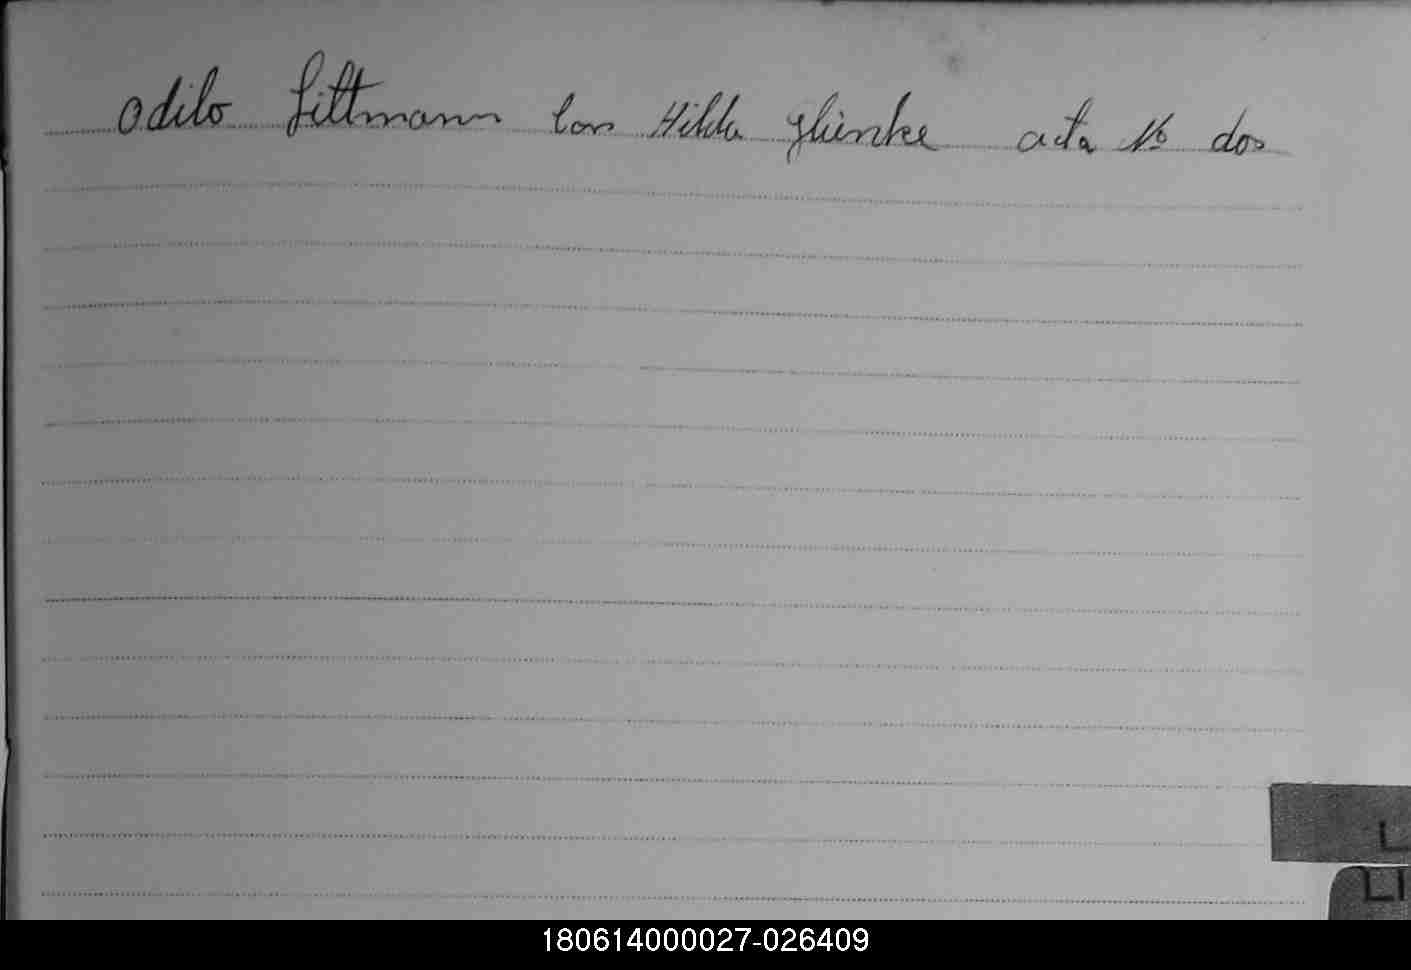 Odilo Littmann con Hilda Glienke acta No dos
L
LI
180614000027-026409